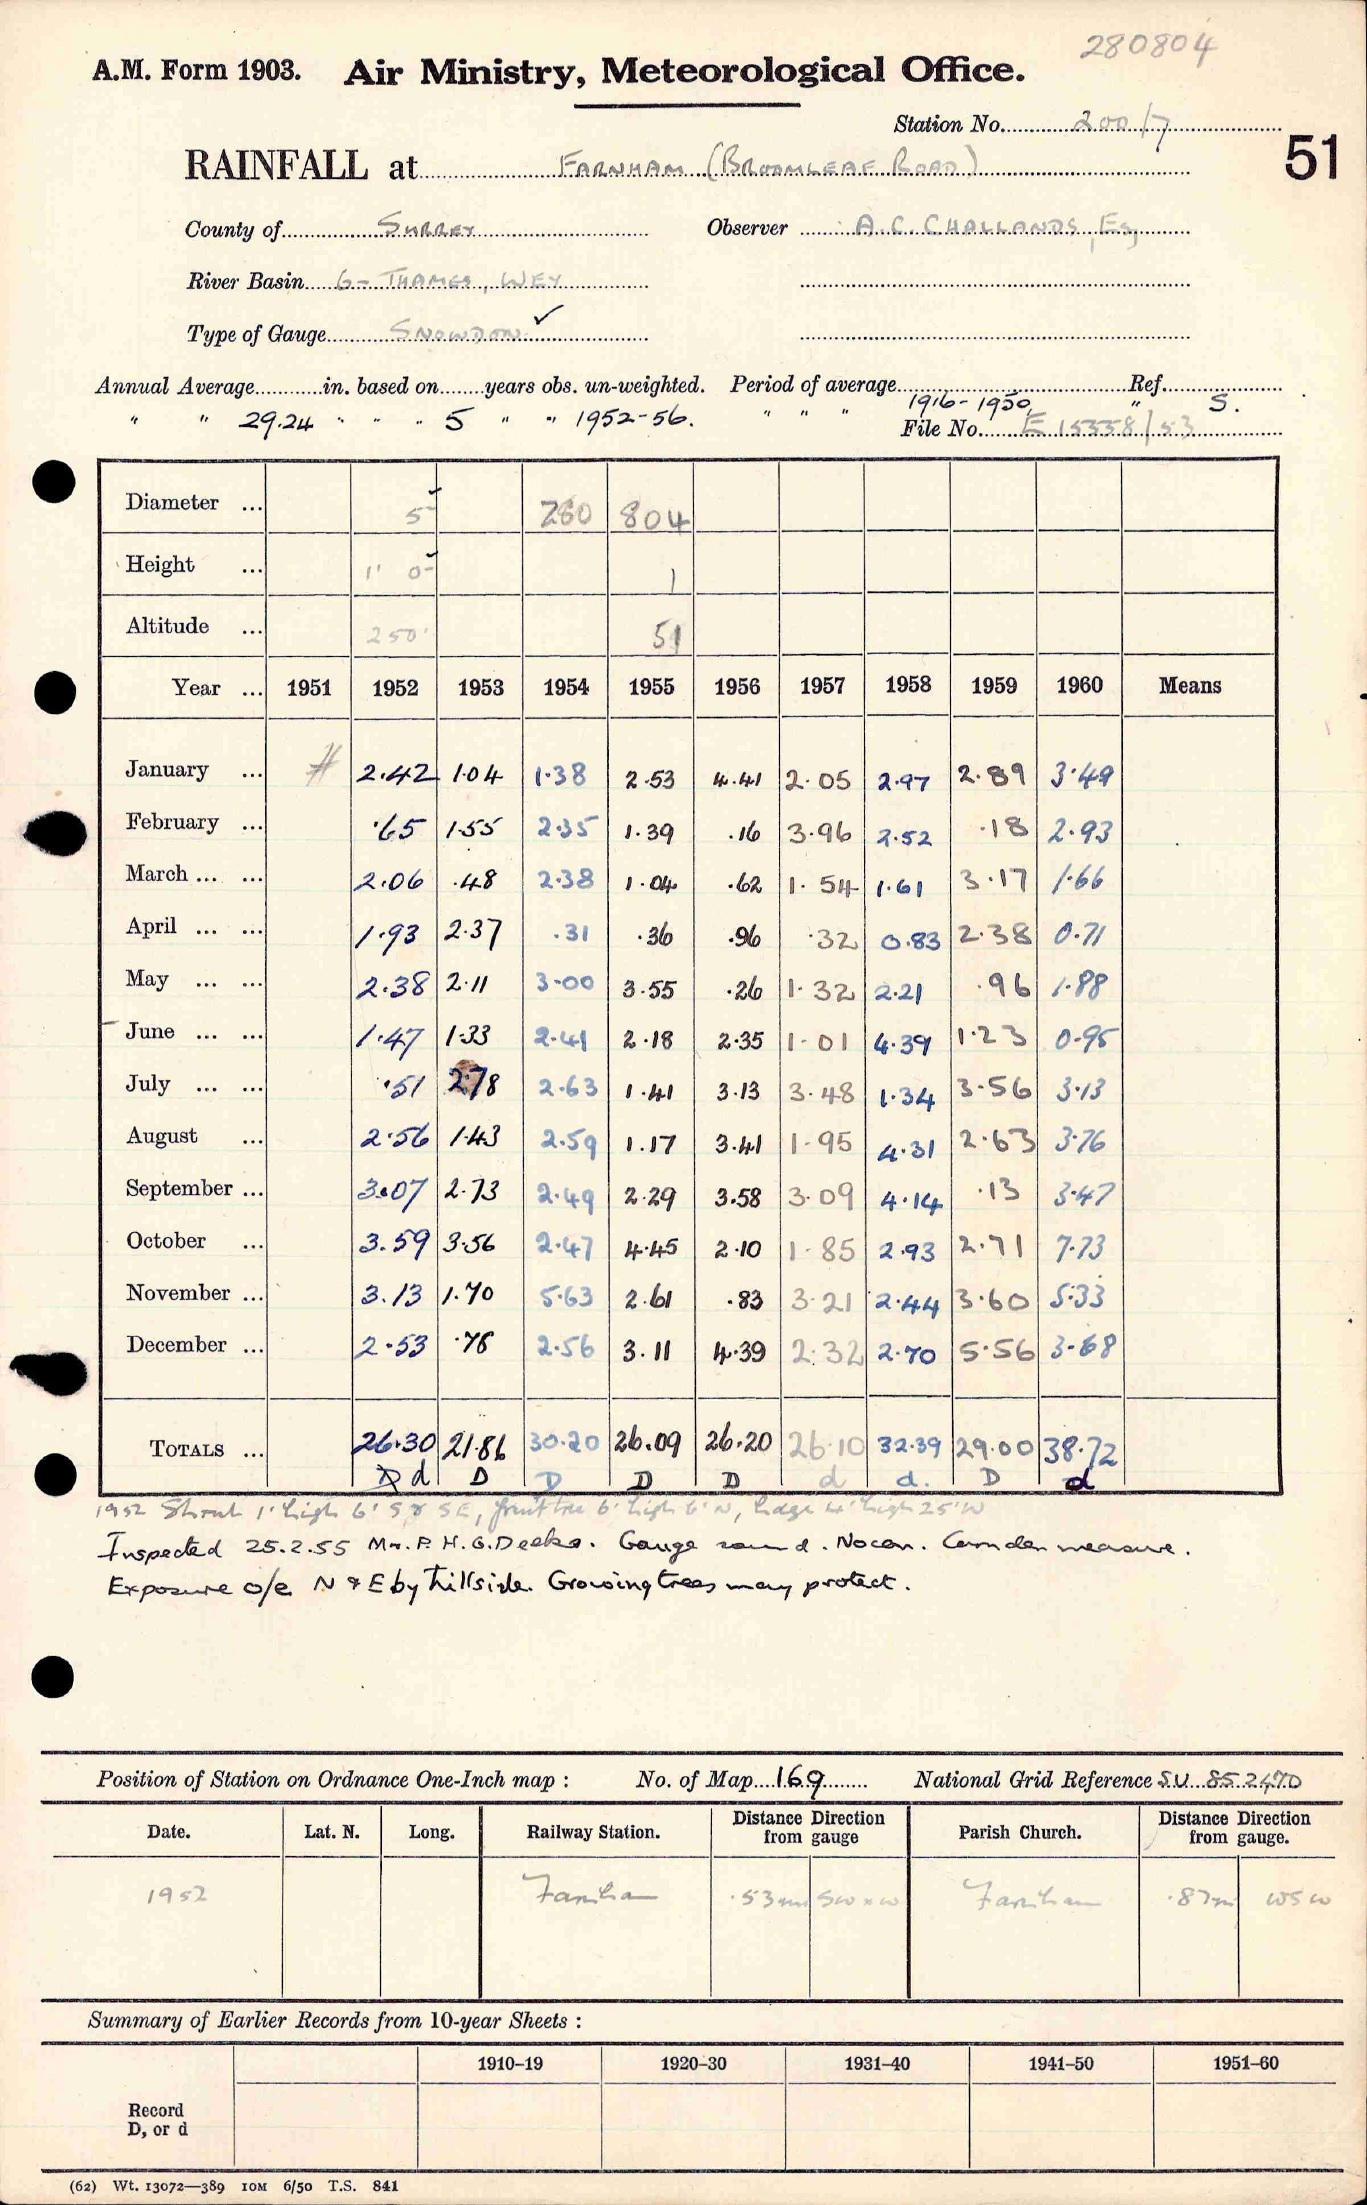 280804
A.M. Form 1903. Air Ministry, Meteorological Office.
Station No. 200/7
51
RAINFALL at FARNHAM (BROOMLEAF ROAD)
County of SURREY Observer A.C. CHALLANDS, Esq
River Basin 6- THAMES, WEY
Type of Gauge SNOWDON ✓
Annual Average in. based on years obs. un-weighted. Period of average Ref.
" " 29.24 " " " 5 " " 1952-56. " " " 1916-1950. " S.
File No. E 15558/53
Diameter ... 5 280 804
Height ... 1' 0 1
Altitude ... 250' 51
Year ... 1951 1952 1953 1954 1955 1956 1957 1958 1959 1960 Means
January ... # 2.42 1.04 1.38 2.53 4.41 2.05 2.97 2.89 3.49
February ... .65 1.55 2.35 1.39 .16 3.96 2.52 .18 2.93
March ... ... 2.06 .48 2.38 1.04 .62 1.54 1.61 3.17 1.66
April ... ... 1.93 2.37 .31 .36 .96 .32 0.83 2.38 0.71
May ... ... 2.38 2.11 3.00 3.55 .26 1.32 2.21 .96 1.88
June ... ... 1.47 1.33 2.41 2.18 2.35 1.01 4.39 1.23 0.95
July ... ... .51 2.78 2.63 1.41 3.13 3.48 1.34 3.56 3.13
August ... 2.56 1.43 2.59 1.17 3.41 1.95 4.31 2.63 3.76
September ... 3.07 2.73 2.49 2.29 3.58 3.09 4.14 .13 3.47
October ... 3.59 3.56 2.47 4.45 2.10 1.85 2.93 2.71 7.73
November ... 3.13 1.70 5.63 2.61 .83 3.21 2.44 3.60 5.33
December ... 2.53 .78 2.56 3.11 4.39 2.32 2.70 5.56 3.68
TOTALS ... 26.30 21.86 30.20 26.09 26.20 26.10 32.39 29.00 38.72
D d D D D D d d. D d
1952 Shrub 1' high 6' S & SE, fruit tree 6' high 6' N, hedge 4' high 25' W
Inspected 25.2.55 Mr. P. H. G. Deeks. Gauge sound. No con. Camden measure.
Exposure o/e N & E by hillside. Growing trees may protect.
Position of Station on Ordnance One-Inch map : No. of Map 169 National Grid Reference SU 852470
Date. Lat. N. Long. Railway Station. Distance Direction from gauge Parish Church. Distance Direction from gauge.
1952 Farnham .53m SW x W Farnham .87m WSW
Summary of Earlier Records from 10-year Sheets :
1910–19 1920–30 1931–40 1941–50 1951–60
Record
D, or d
(62) Wt. 13072—389 10M 6/50 T.S. 841